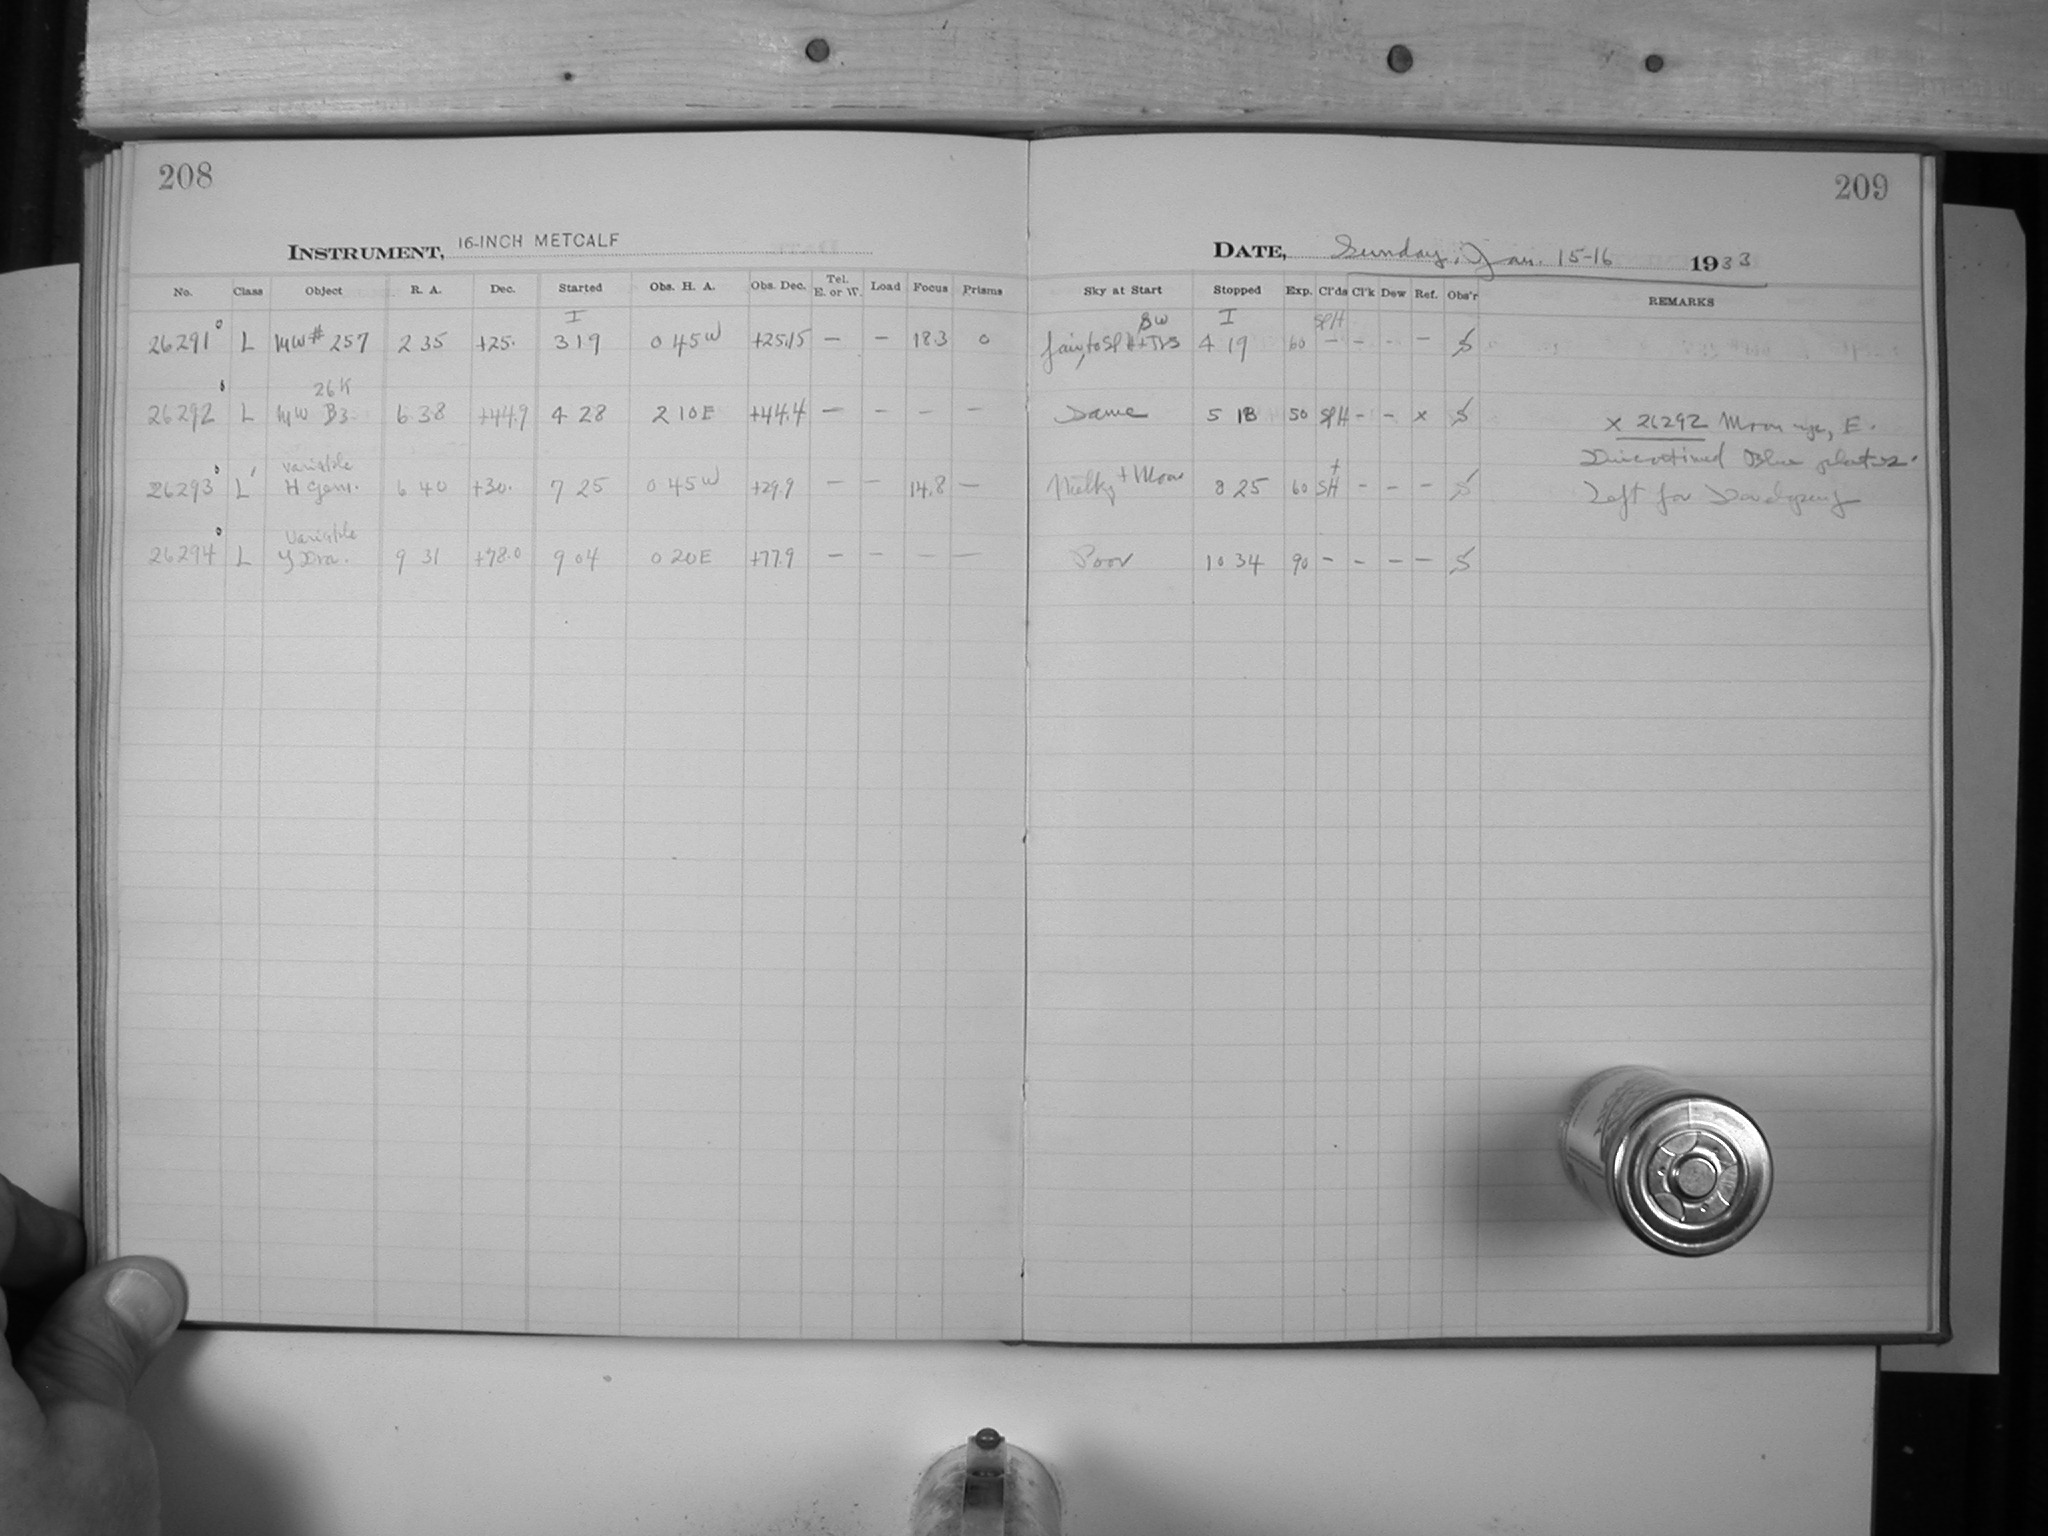 208
209
INSTRUMENT, 16-INCH METCALF
DATE, Sunday, Jan. 15-16 1933
No. Class Object R. A. Dec. Started Obs. H. A. Obs. Dec. Tel. E. or W. Load Focus Prisms Sky at Start Stopped Exp. Cl'ds Cl'k Dew Ref. Obs'r REMARKS
I BW I SPH
26291 L MW # 257 2 35 +25. 3 19 0 45 W +25.15 — — 18.3 0 fair, to SPH + 4 19 60 — — — —
26K
26292 L MW B3 6 38 +44.9 4 28 2 10 E +44.4 — — — — Same 5 18 50 SPH — — x
x 26292 Moon E.
Discontinued Blue plates.
Variable
26293 L' H Gem. 6 40 +30. 7 25 0 45 W +29.9 — — 14.8 — Milky + Moon 8 25 60 SH — — —
Left for Developing
Variable
26294 L Y Dra. 9 31 +78.0 9 04 0 20 E +77.9 — — — — Poor 10 34 90 — — — —